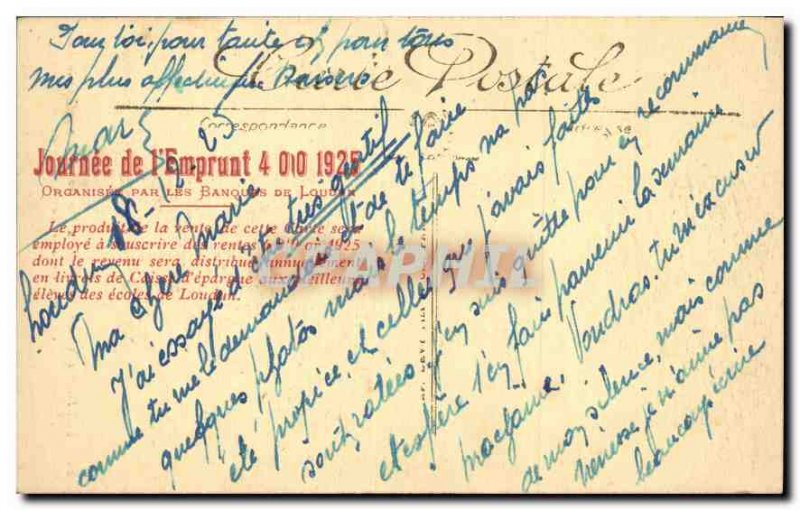 Pour toi, pour tante et pour tous
mes plus affectueux baisers
Carte Postale
Correspondance
Journée de l'Emprunt 4 0/0 1925
Organisée par les Banques de Loudun
Le produit de la vente de cette Carte sera
employé à souscrire des rentes 4 0/0 or 1925
dont le revenu sera distribué annuellement
en livrets de Caisse d'épargne aux meilleurs
élèves des écoles de Loudun.
Loudun 18 25
Ma Marie
J'ai essayé d'être très gentil
comme tu me le demandais et de te faire
quelques photos mais le temps n'a pas
été propice, et celles que j'avais faites
sont ratées j'en suis quitte pour en recommencer
et espère t'en faire parvenir la semaine
Voudras-tu m'excuser
de mon silence, mais comme
je n'aime pas
beaucoup écrire
CPAPHIL